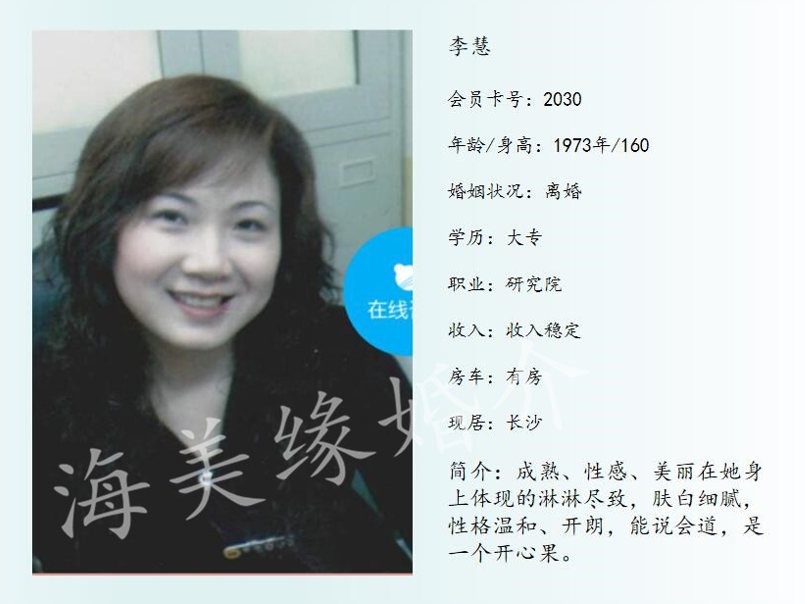 李慧
会员卡号：2030
年龄/身高：1973年/160
婚姻状况：离婚
学历：大专
职业：研究院
收入：收入稳定
房车：有房
现居：长沙
简介：成熟、性感、美丽在她身
上体现的淋淋尽致，肤白细腻，
性格温和、开朗，能说会道，是
一个开心果。
在线
海美缘婚介